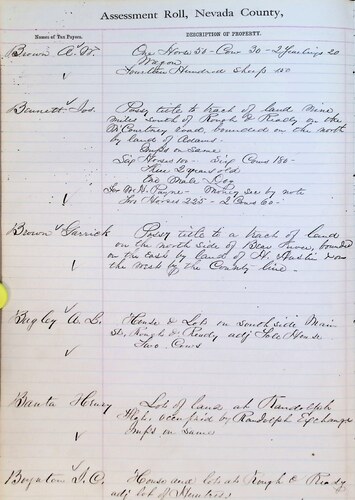 Assessment Roll, Nevada County,
Names of Tax Payers.
DESCRIPTION OF PROPERTY.
Brown A. W. One Horse 50 - Cow 30 - 2 Yearlings 20
Wagon
Fourteen Hundred Sheep
Bennett Jos. Possy title to tract of land nine
miles south of Rough & Ready on the
McCourtney road, bounded on the north
by land of Adams.
Imps on same
Six Horses - Six Cows 180 -
Three 2 years old
One Male
for W. H. Payne - Money sec by note
Horses 225 - 2 Cows 60 -
Brown Garrick Possy title to a tract of land
on the north side of Bear River, bounded
on the east by land of H. Austin & on
the west by the County line.
Bagley A. L. House & Lots on south side Main
St, Rough & Ready adj House
Two Cows
Banta Henry Lots of land at Randolph
Flat, occupied by Randolph Exchange
Imps on same
Boynton S. C. House and lot at Rough & Ready
adj lot of Hunters